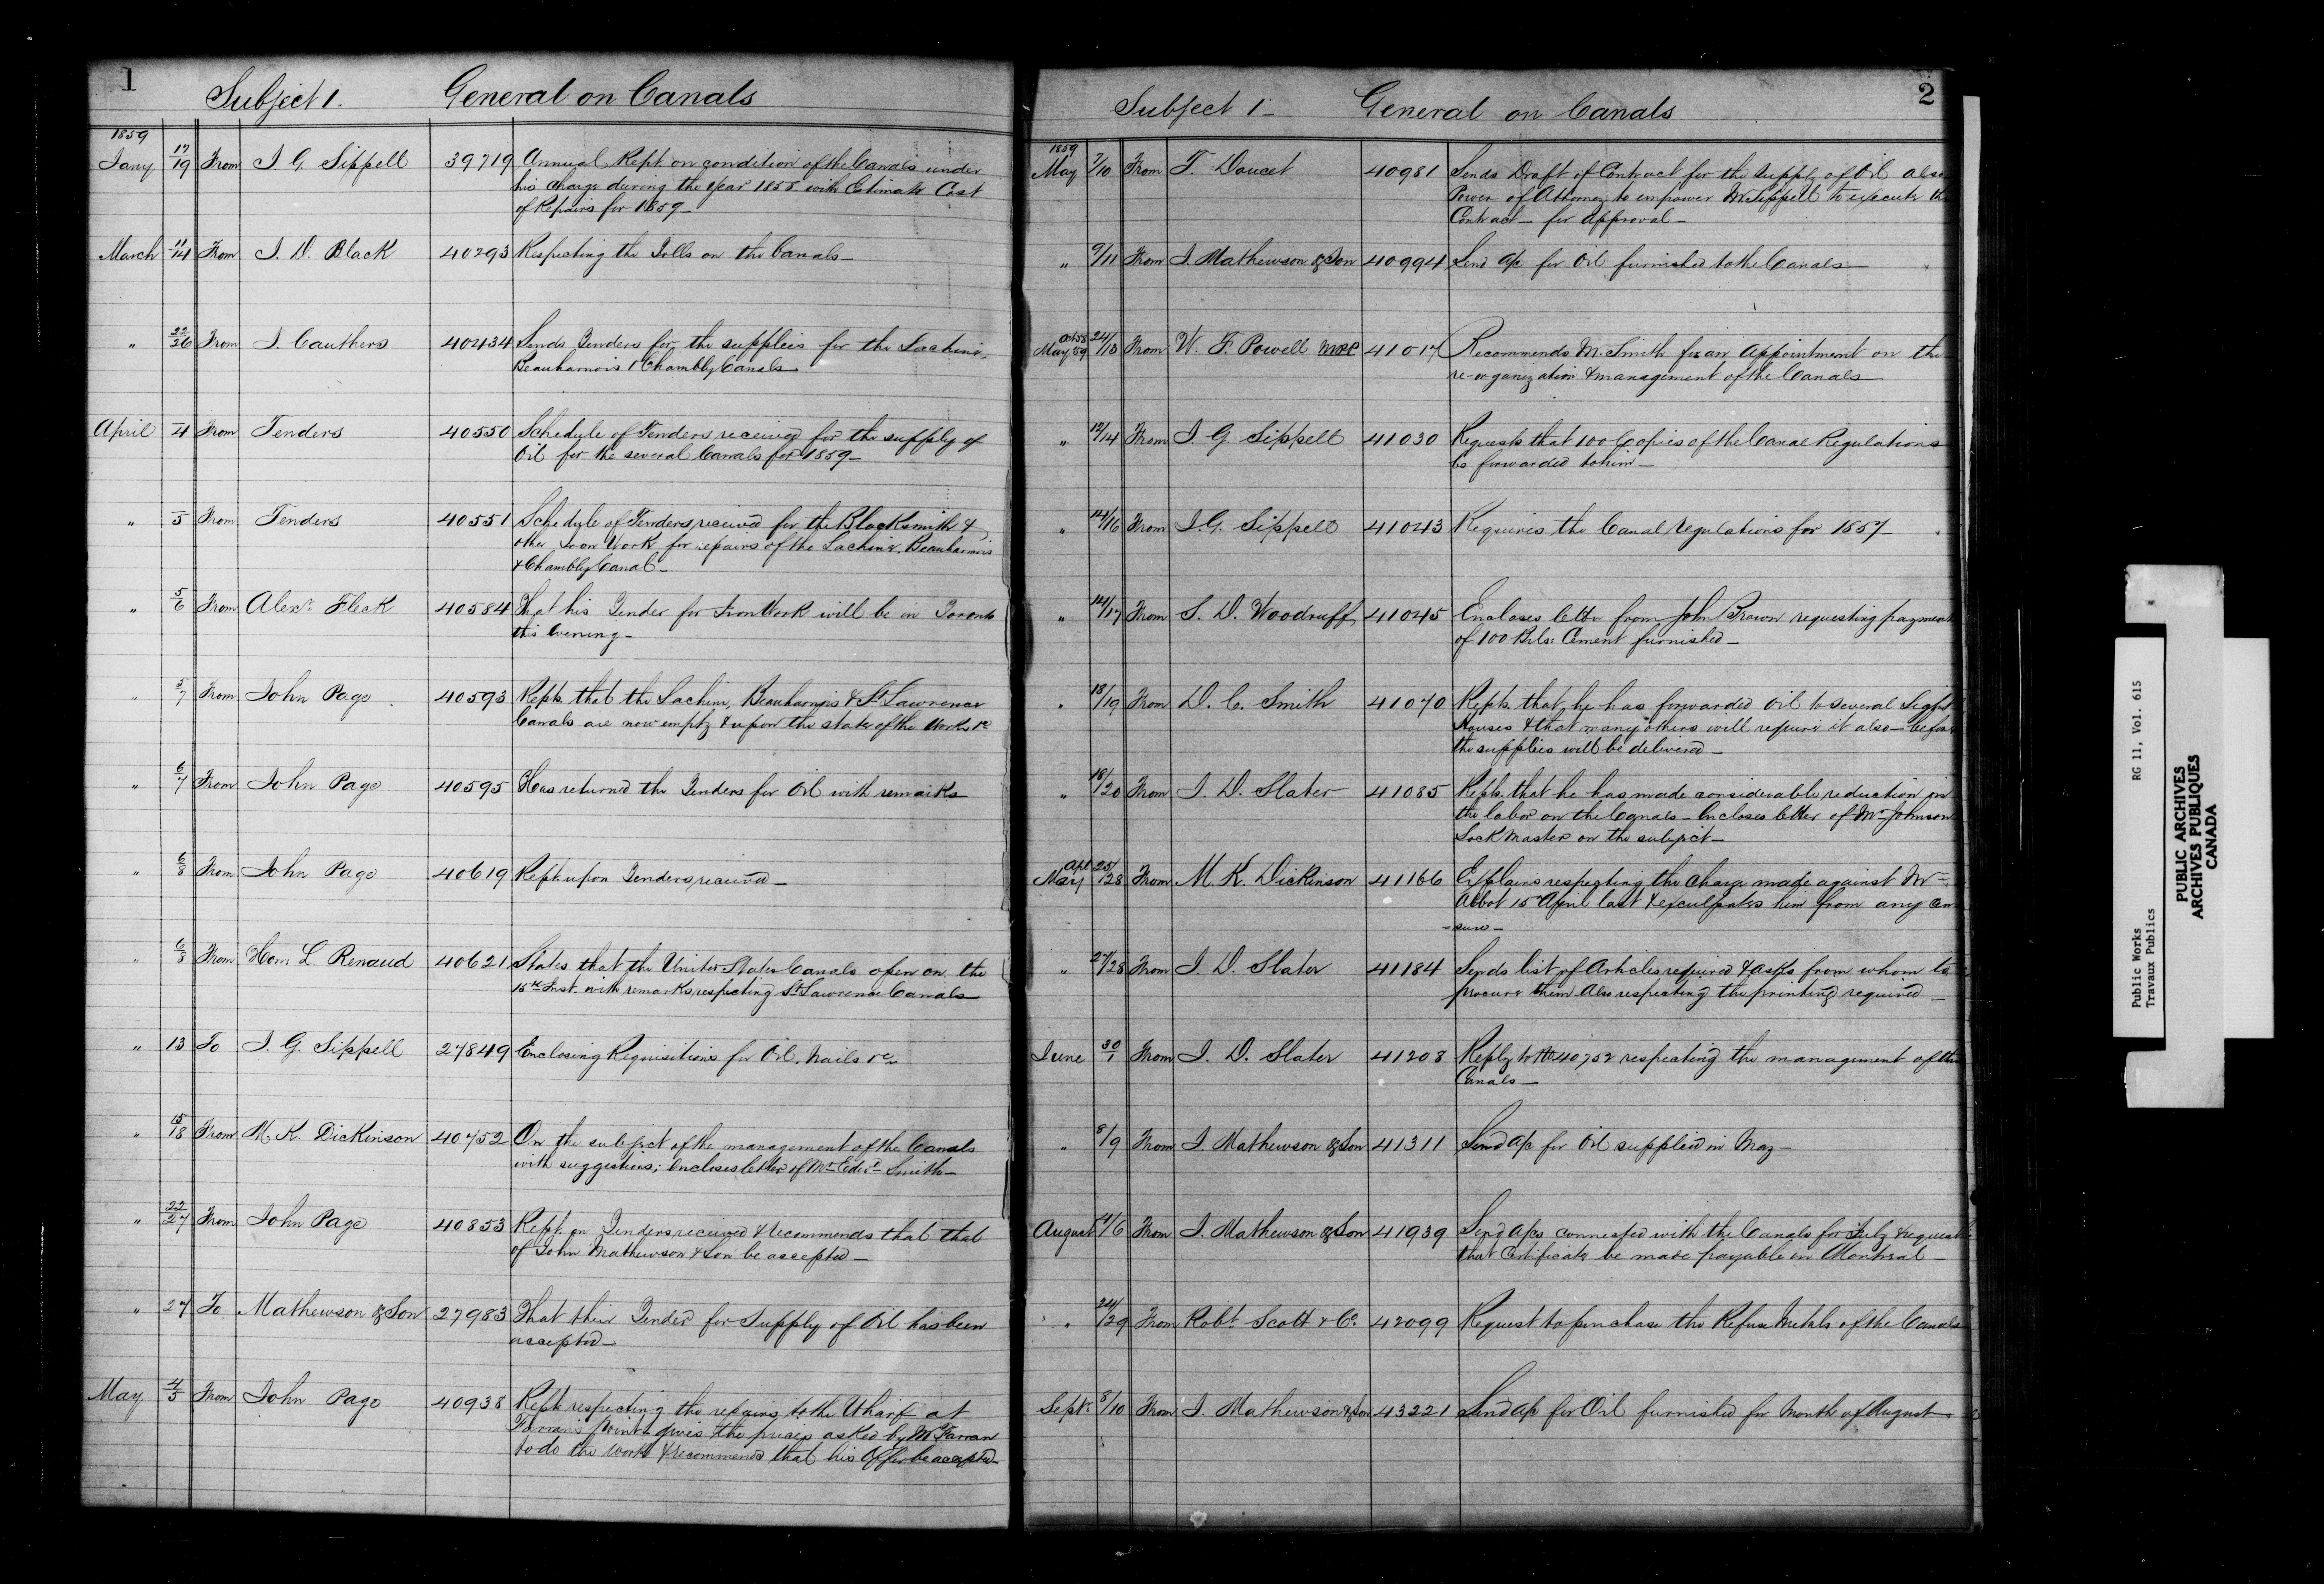 1
Subject 1. General on Canals
1859
Jany 17/19 From J. G. Sippell 39719 Annual Rept. on condition of the Canals under
his charge during the year 1858 with Estimate Cost
of Repairs for 1859_
March 11/14 From J. D. Black 40293 Respecting the Tolls on the Canals_
" 22/26 From J. Cauthers 40434 Sends Tenders for the supplies for the Lachine,
Beauharnois & Chambly Canals_
April —/4 From Tenders 40550 Schedule of Tenders received for the supply of
Oil for the several Canals for 1859_
" —/5 From Tenders 40551 Schedule of Tenders received for the Blacksmith &
other Iron Work for repairs of the Lachine, Beauharnois
& Chambly Canal_
" 5/6 From Alexr. Fleck 40584 That his Tender for Iron Work will be in Toronto
this Evening_
" 5/7 From John Page 40593 Repts. that the Lachine, Beauharnois & St. Lawrence
Canals are now empty & upon the state of the Works &c
" 6/7 From John Page 40595 Has returned the Tenders for Oil with remarks
" 6/8 From John Page 40619 Rept. upon Tenders received_
" 6/8 From Hon. L. Renaud 40621 States that the United States Canals open on the
15th Inst. with remarks respecting St. Lawrence Canals
" 13 To J. G. Sippell 27849 Enclosing Requisitions for Oil, Nails &c
" 15/18 From M. K. Dickinson 40752 On the subject of the management of the Canals
with suggestions; Encloses letter of Mr. Edwd. Smith_
" 22/27 From John Page 40853 Rept. on Tenders received & recommends that that
of John Mathewson & Son be accepted_
" 27 To Mathewson & Son 27983 That their Tender for Supply of Oil has been
accepted_
May 4/5 From John Page 40938 Rept. respecting the repairs to the Wharf at
Farran's Point_ gives the prices asked by Mr. Farran
to do the work & recommends that his Offer be accepted_
2
Subject 1_ General on Canals
1859
May 7/10 From T. Doucet 40981 Sends Draft of Contract for the supply of Oil also
Power of Attorney to empower Mr. Sippell to execute the
Contract_ for approval_
" 9/11 From J. Mathewson & Son 40994 Send a/c for Oil furnished to the Canals
Oct 58 24/
May 59 /13 From W. F. Powell MPP 41017 Recommends Mr. Smith for an Appointment on the
re-organization & management of the Canals
" 12/14 From J. G. Sippell 41030 Requests that 100 Copies of the Canal Regulations
be forwarded to him_
" 14/16 From J. G. Sippell 41043 Requires the Canal regulations for 1857_
" 14/17 From S. D. Woodruff 41045 Encloses letter from John Brown requesting payment
of 100 Brls: Cement furnished_
" 18/19 From D. C. Smith 41070 Repts. that he has forwarded Oil to several Light
Houses & that many others will require it also_ before
the supplies will be delivered_
" 18/20 From J. D. Slater 41085 Repts. that he has made considerable reduction in
the labor on the Canals_ Encloses letter of Mr. Johnson
Lock Master on the subject_
Apl 25/
May /28 From M. K. Dickinson 41166 Explains respecting the charge made against Mr.
Abbot 15 April last & exculpates him from any cen
-sure_
" 27/28 From J. D. Slater 41184 Sends list of Articles required & asks from whom to
procure them Also respecting the printing required_
June 30/1 From J. D. Slater 41208 Reply to No 40752 respecting the management of the
Canals_
" 8/9 From J. Mathewson & Son 41311 Send a/c for Oil supplied in May_
August 4/6 From J. Mathewson & Son 41939 Send a/cs connected with the Canals for July & request
that Certificate be made payable in Montreal_
" 24/29 From Robt. Scott & Co. 42099 Request to purchase the Refuse Metals of the Canals
Sept. 8/10 From J. Mathewson & Son 43221 Send a/c for Oil furnished for Month of August.
Public Works RG 11, Vol. 615
Travaux Publics
PUBLIC ARCHIVES
ARCHIVES PUBLIQUES
CANADA